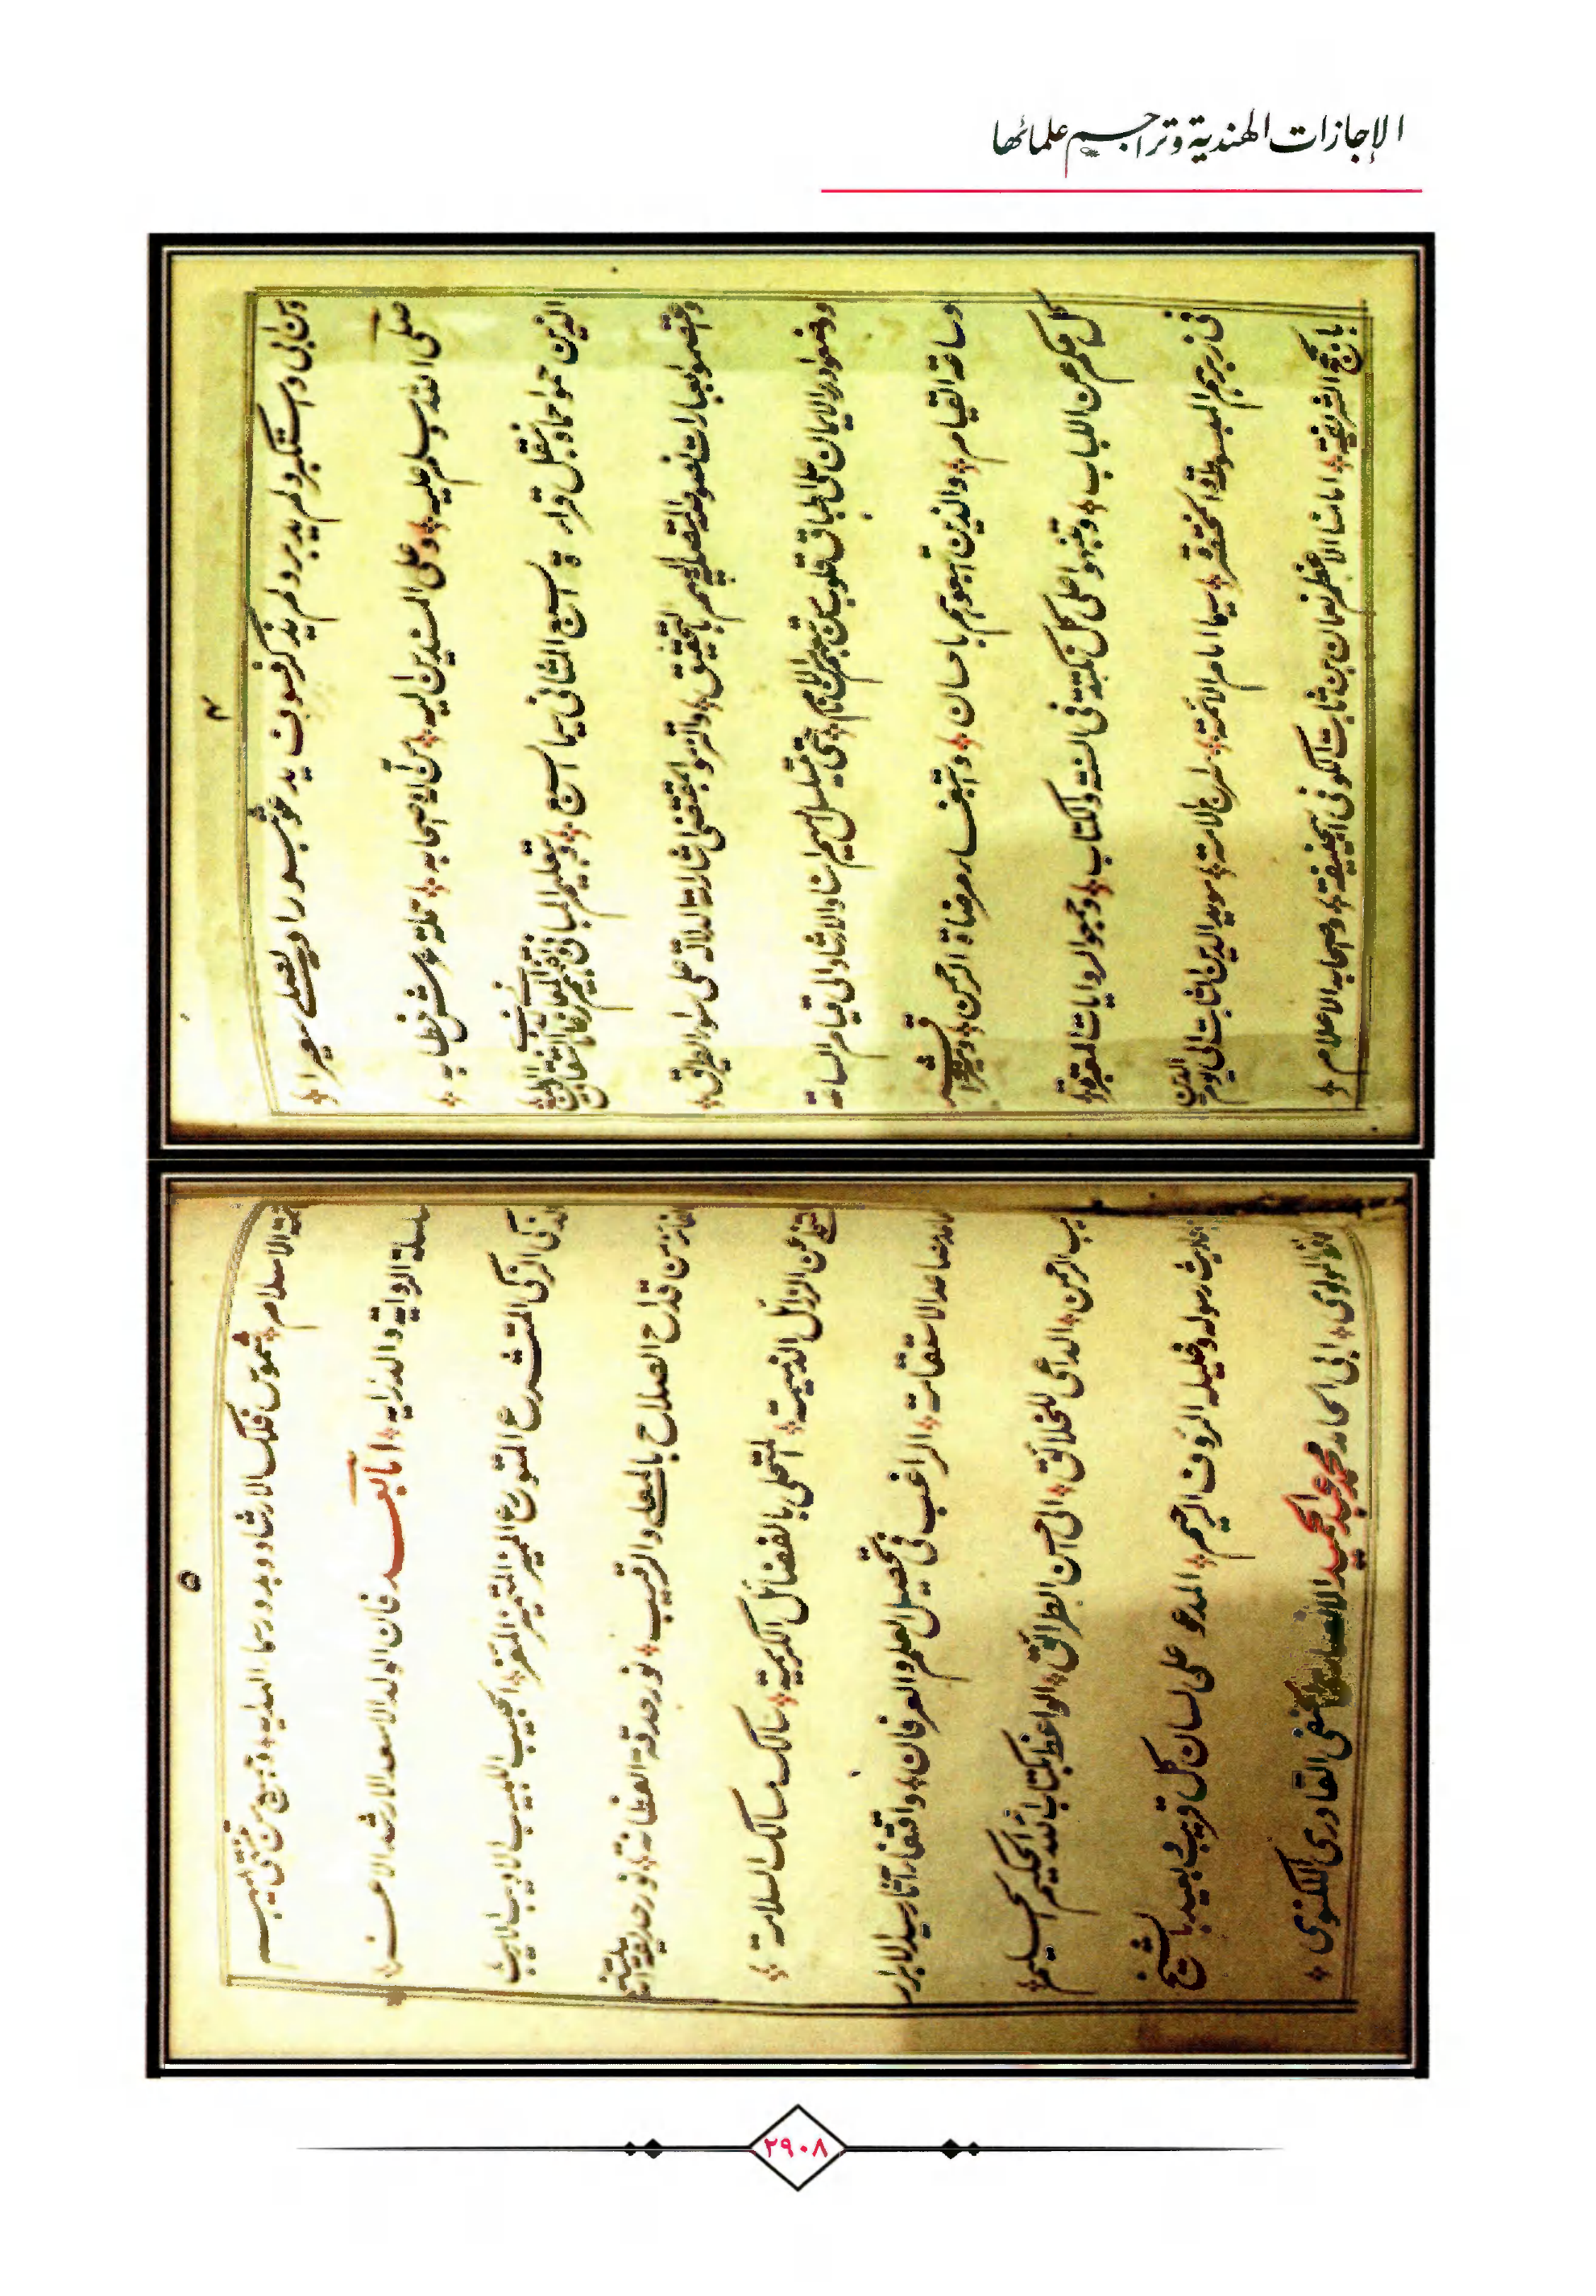 الإجازات الهندية وتراجم علمائها
٤
ومن ابى واستكبر ولم يدبر ولم يذكر فسوف يدعو ثبورا ويصلى سعيرا
صلى الله وسلم عليه وعلى المسندين اليه من آله وصحابه تملة عرش خطابه
الذين حملوا حماد بنقل قراءة السبع المثانى سيما السبع وبتعليم المبانى
واعتصموا بعبارات نصوصه المتصلة اليهم بالتحقيق والتزموا بمقتضى اشارات الدلالة على سواء الطريق
ووضعوا درر الايمان على اطباق قلوب من تبعهم من الانام حتى تسلسل اليهم اسناد الارشاد الى قيام الساعة
وساعة القيام والذين اتبعوهم باحسان وابتغاء مرضاة الرحمن
كل حكم من اللباب ونبهوا على كل نكتة فى السنة والكتاب وجمعوا الروايات المعتبرة
فى زبرهم المبسوطة والمختصرة سيما امام الائمة سراج الامة مويد الدين الثابت الى يوم الدين
بالحجج الشريفة امامنا الاعظم نعمان بن ثابت الكوفى ابى حنيفة وصحابه الاعلام
٥
الاسلام شموس فلك الارشاد وبدور سماء الهداية وجميع من
سلسلة الرواية والدراية اما بعد فان الولد الاسعد الارشد الاعز
الذكى الزكى المتشرع المتورع المميز المتميز الحبيب اللبيب الاديب الاريب
الفائز من قدح الصلاح بالمعلى والرقيب نور حدقة الفطانة نور حديقة
المتخلى عن الرذائل الذميمة المتحلى بالفضائل الكريمة سالك مسالك السلامة
صاعد الاستقامة الراغب فى تحصيل العلم والعرفان واقتفاء آثار سيد الابرار
الرحمن الداعى للخلائق الى احسن الطرائق الواعظ بكتاب الله الحكيم
حاديث رسوله وخليله الرؤف الرحيم المدعو على لسان كل قريب وبعيد بالشيخ
المولوى ابى الحامد محمد عبد الحميد الانصارى الحنفى القادرى اللكنوى
٢٩٠٨